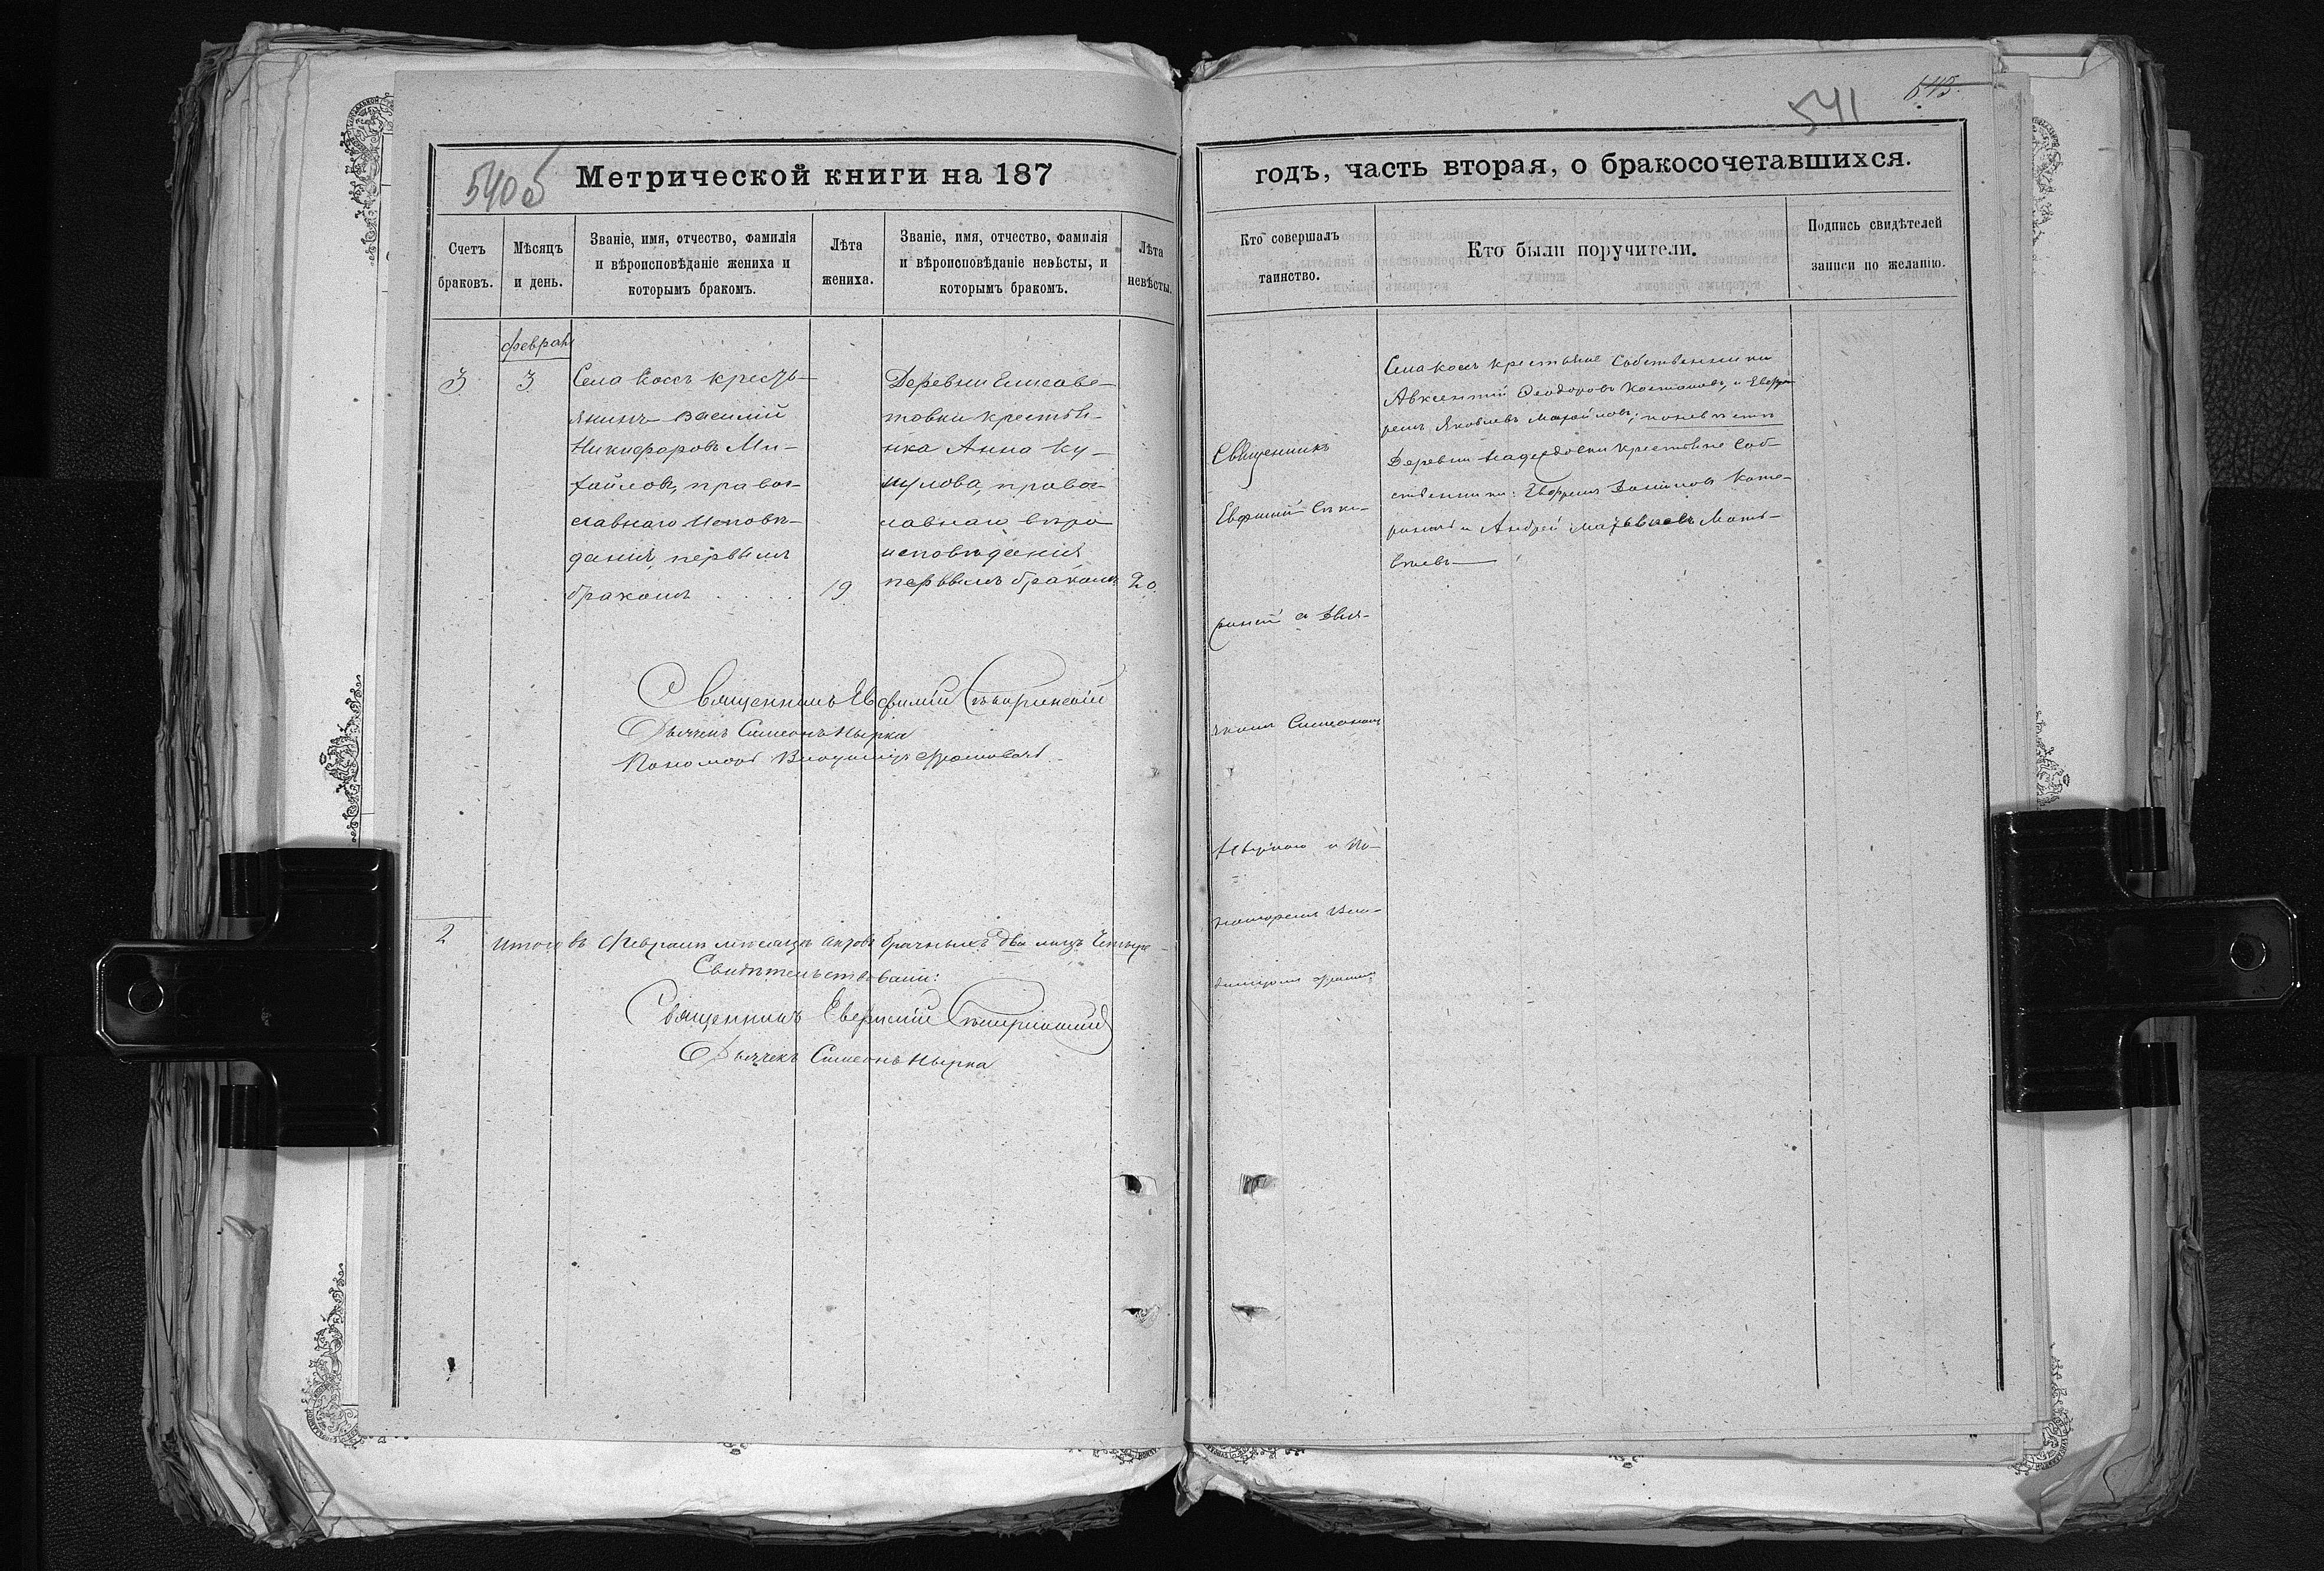 540об
Метрической книги на 187
Счетъ браковъ.
Мѣсяцъ и день.
Званіе, имя, отчество, фамилія и вѣроисповѣданіе жениха и которымъ бракомъ.
Лѣта жениха.
Званіе, имя, отчество, фамилія и вѣроисповѣданіе невѣсты, и которымъ бракомъ.
Лѣта невѣсты.
3
феврал
3
Села Коссъ крестъ-
янинъ Василий
Никифоровъ Ми-
хайловъ, право-
славнаго исповѣ-
данія, первымъ
бракомъ
19
Деревни Елисаве-
товки крестья-
нка Анна Ку-
шулова, право-
славнаго вѣро
исповѣданія
первымъ бракомъ
20
Священникъ Евфимій
Дьячекъ Симеонъ Нырка
Пономарь
2
Итого въ Февралѣ мѣсяцѣ актовъ брачныхъ два лицъ четыре
Свидѣтельствовали:
Священникъ Евфимій
Дьячекъ Симеонъ Нырка
541
годъ, часть вторая, о бракосочетавшихся.
Кто совершалъ таинство.
Кто были поручители.
Подпись свидѣтелей записи по желанію.
Священникъ
Евфимий
съ Дья-
чкомъ Симеономъ
Ныркою и По-
номаремъ Вла-
Села Коссъ крестьяне собственники
Авксентий Феодоровъ и Евфре-
ремъ Яковлевъ Михайловъ; по невѣстѣ
Деревни крестьяне соб-
ственники: Ефремъ Даниловъ
и Андрей Матвѣевъ Матв-
ѣевъ